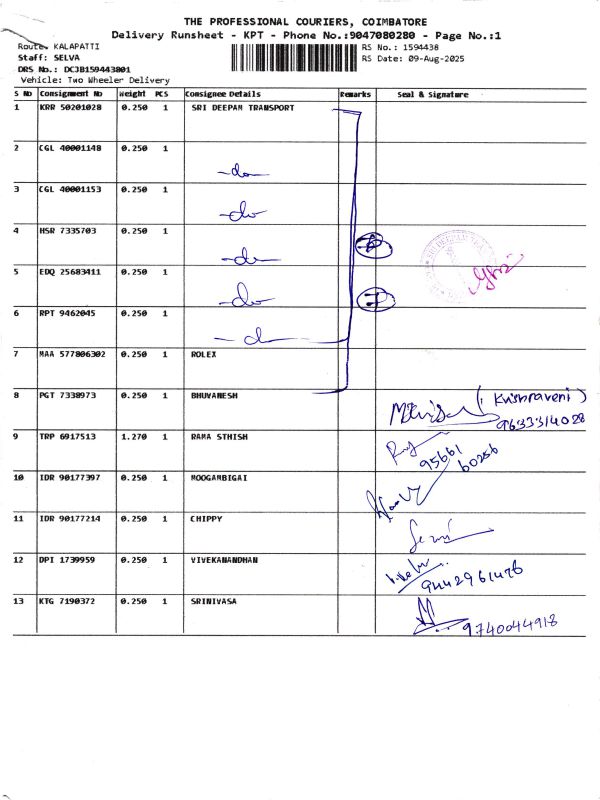 THE PROFESSIONAL COURIERS, COIMBATORE
Delivery Runsheet - KPT - Phone No.:9047080280 - Page No.:1
Route. KALAPATTI
RS No.: 1594438
Staff: SELVA
RS Date: 09-Aug-2025
DRS No.: DCJB159443801
Vehicle: Two Wheeler Delivery
S No Consignment No Weight PCS Consignee Details Remarks Seal & Signature
1 KRR 50201028 0.250 1 SRI DEEPAM TRANSPORT
2 CGL 40001148 0.250 1 -do-
3 CGL 40001153 0.250 1 -do-
4 HSR 7335703 0.250 1 -do-
5 EDQ 25683411 0.250 1 -do-
6 RPT 9462045 0.250 1 -do-
7 MAA 577806302 0.250 1 ROLEX
8 PGT 7338973 0.250 1 BHUVANESH (Krishnaveni)
9633314028
9 TRP 6917513 1.270 1 RAMA STHISH 95661
60256
10 IDR 90177397 0.250 1 MOOGAMBIGAI
11 IDR 90177214 0.250 1 CHIPPY
12 DPI 1739959 0.250 1 VIVEKANANDHAN 9442961476
13 KTG 7190372 0.250 1 SRINIVASA 9740044918